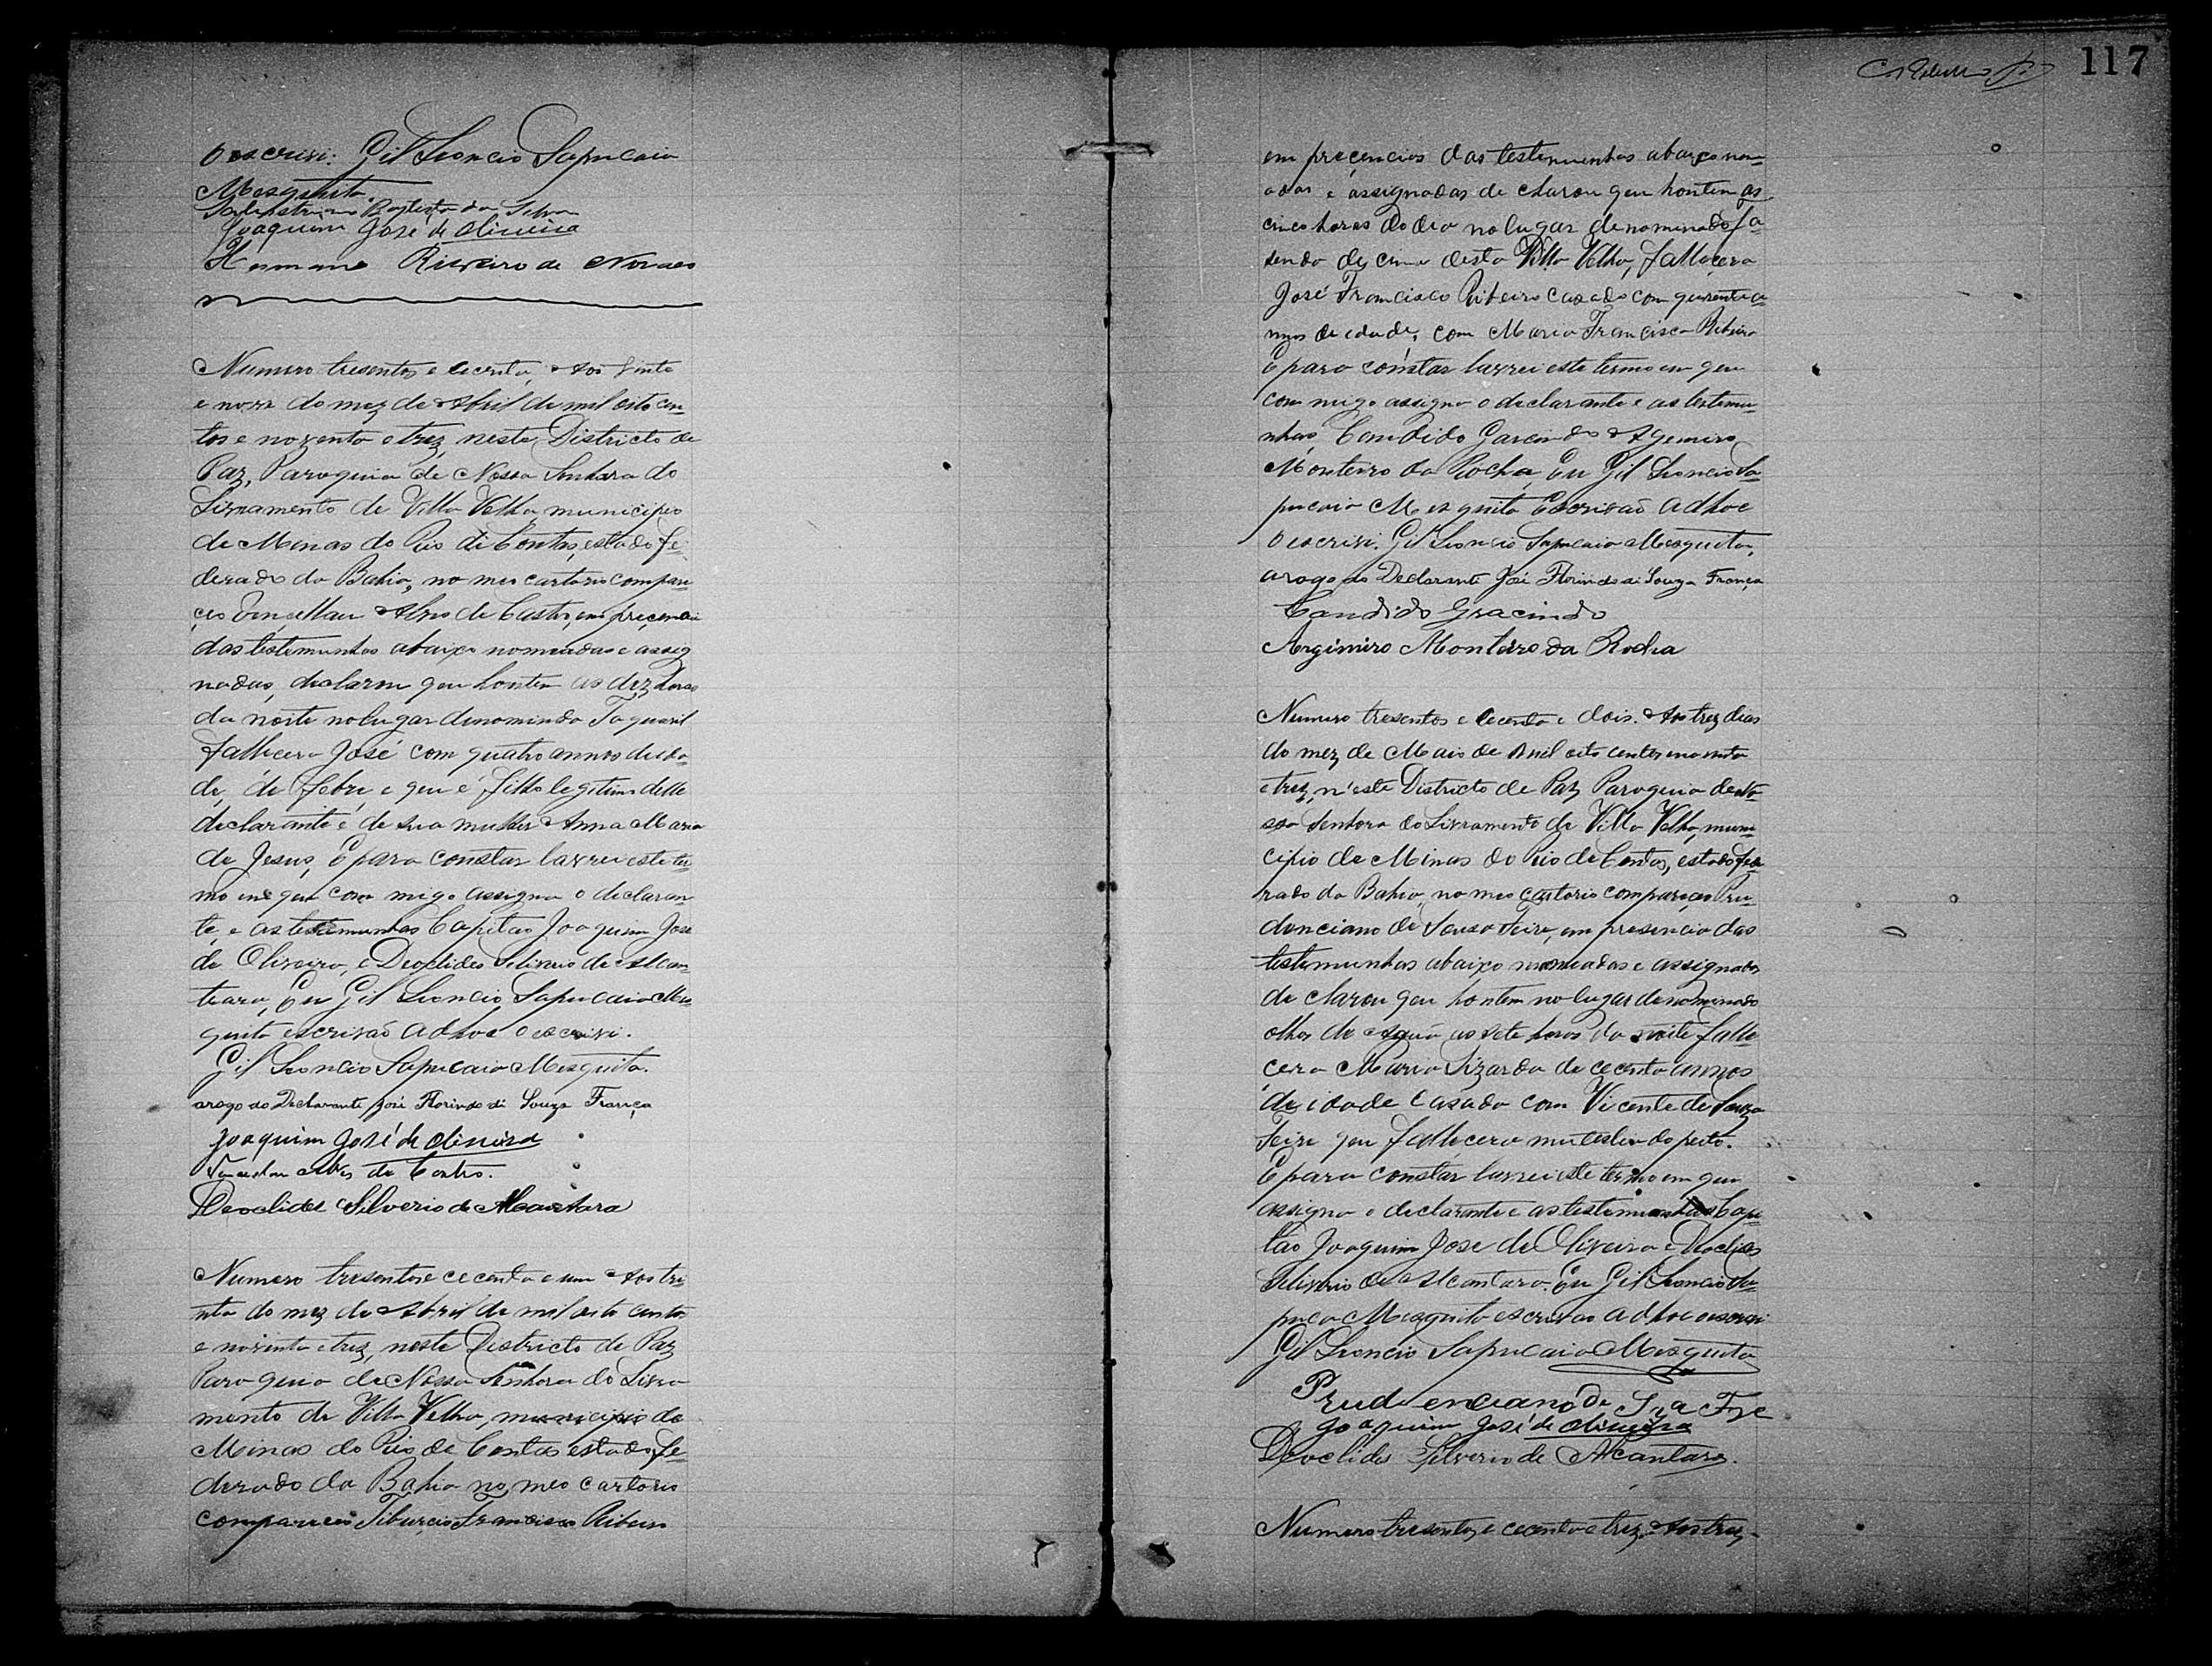 o escrivi. Gil Leoncio Sapucaia
Mesquita.
Baptista da Silva
Joaquim José de Oliveira
Hermano Ribeiro de Novaes
Numero tresentos e cecenta, Aos vinte
e nove do mez de Abril de mil oito cen
tos e noventa e trez, neste Districto de
Paz, Paroquia de Nossa Senhora do
Livramento de Villa Velha municipio
de Minas do Rio de Contas, estado fe
derado da Bahia, no meo cartorio compare
ceo Vencellau Alves de Castro, em precencia
das testemunhas abaixo nomeadas e assig
nadas, declarou que hontem as dez horas
da noite no lugar denominado Taquaril
fallecera José com quatro annos de ida
de, de febre e que é filho legitimo delle
declarante e de sua mulher Anna Maria
de Jesus, E para constar lavrei este ter
mo em que com migo assigna o declaran
te, e as testemunhas Capitao Joaquim José
de Oliveira, e Deoclides Silverio de Alcan
tara, Eu Gil Leoncio Sapucaia Mes
quita escrivaõ ad hoc o escrivi.
Gil Leoncio Sapucaia Mesquita.
arogo do Declarante José Florindo di Souza França
Joaquim José de Oliveira
Venceslau Alves de Castro.
Deoclides Silverio de Alcantara
Numero tresentos e cecenta e um Aos tri
nta do mez de Abril de mil oito centos
e noventa e trez, neste Districto de Paz
Paroquia de Nossa Senhora do Livra
mento de Villa Velha, municipio de
Minas do Rio de Contas estado fe
derado da Bahia no meo cartorio
compareceo Tiburcio Francisco Ribeiro
117
em precencia das testemunhas abaixo nome
adas e assignadas de clarou que hontem as
cinco horas do dia no lugar denominado fa
senda de cima desta Villa Velha, fallecera
José Francisco Ribeiro casado com quarenta a
nnos de idade, com Maria Francisca Ribeiro
E para constar lavrei este termo em que
com migo assigna o declarante e as testemu
nhas Candido Garcindo e Agemiro
Monteiro da Rocha, Eu Gil Leoncio Sa
pucaia Mesquita Escrivaõ ad hoc
o escrivi. Gil Leoncio Sapucaia Mesquita,
arogo do Declarante José Florindo di Souza França
Candido Gracindo
Argimiro Monteiro da Rocha
Numero tresentos e cecenta e dois. Aos trez dias
do mez de Maio de mil oito centos e noventa
e trez, n'este Districto de Paz Paroquia de No
ssa Senhora do Livramento de Villa Velha, muni
cipio de Minas do Rio de Contas, estado fede
rado da Bahia, no meo cartorio compareceo Pru
denciano de Souza Feire, em presencia das
testemunhas abaixo nomeadas e assignadas
de clarou que hontem no lugar denominado
olhos de agua as sete horas da noite falle
cera Maria Lizarda de cecenta annos
de idade casada com Vicente de Souza
Feire que fallecera mulestia do peito.
E para constar lavrei este termo em que
assigna o declarante e as testemunhas Capi
tão Joaquim José de Oliveira e Deoclides
Silverio de Alcantara. Eu Gil Leoncio Sa
puca Mesquita escrivao ad hoc o escrivi
Gil Leoncio Sapucaia Mesquita
Prudenciano de Sza Fre
Joaquim José de Oliveira
Deoclides Silverio de Alcantara.
Numero tresentos e cecenta e trez. Aos trez